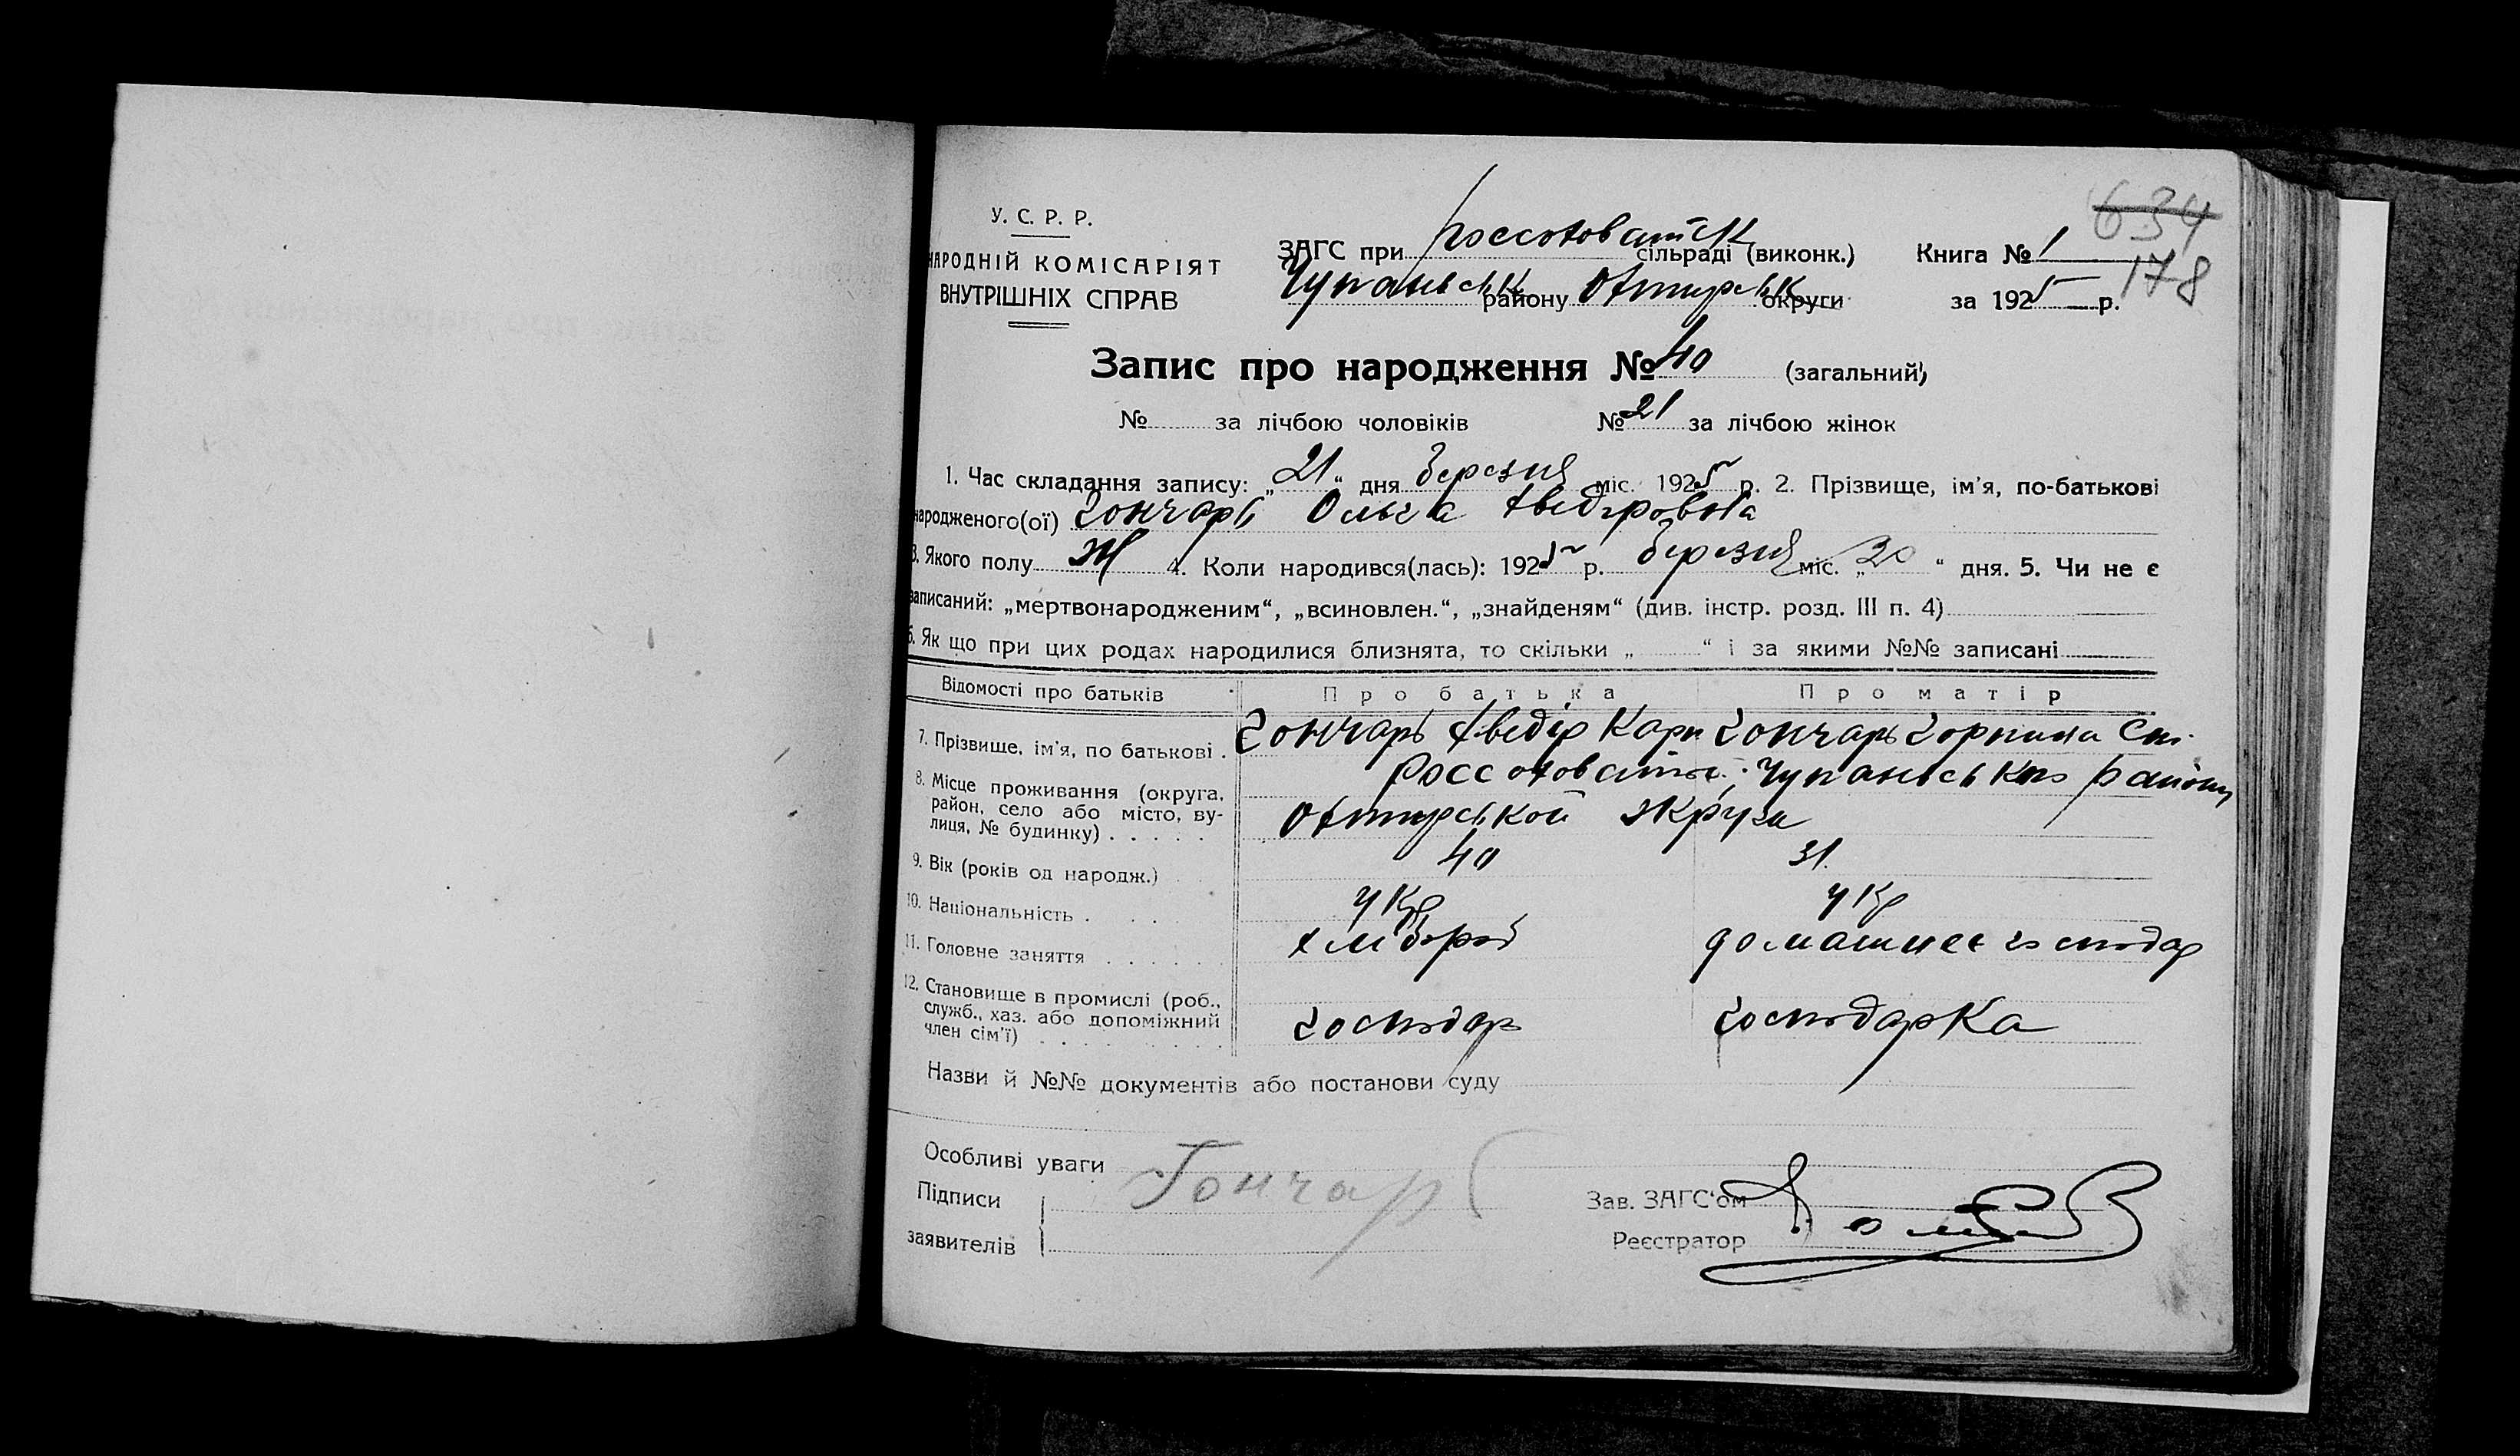 634
178
У. С. Р. Р.
НАРОДНІЙ КОМІСАРІЯТ
ВНУТРІШНІХ СПРАВ
ЗАГС при Россоховатськ сільраді (виконк.)
Чупаньськ району Охтирськ округи
Книга № 1
за 1925 р.
Запис про народження № 40 (загальний)
№ за лічбою чоловіків № 21 за лічбою жінок
1. Час складання запису: „21“ дня березня міс. 1925 р. 2. Прізвище, ім'я, по-батькові
народженого(ої) Гончарь Ольга Хведоровна
3. Якого полу Ж 4. Коли народився(лась): 1925 р. березня міс. „20“ дня. 5. Чи не є
записаний: „мертвонародженим“, „всиновлен.“, „знайденям“ (див. інстр. розд. III п. 4)
6. Як що при цих родах народилися близнята, то скільки „ “ і за якими №№ записані
Відомості про батьків Про батька Про матір
7. Прізвище, ім'я, по батькові . Гончарь Хведір Карп Гончарь Горпина
8. Місце проживання (округа, район, село або місто, вулиця, № будинку) . . . . . Чупаньського району
Охтирськой округи
9. Вік (років од народж.) 40 31.
10. Національність . . . укр укр
11. Головне заняття . . . . . . хлібороб домашнее господар
12. Становище в промислі (роб.,
служб., хаз. або допоміжний
член сім'ї) . . . . . . . . господар господарка
Назви й №№ документів або постанови суду
Особливі уваги
Підписи
заявителів
Гончар
Зав. ЗАГС'ом
Реєстратор